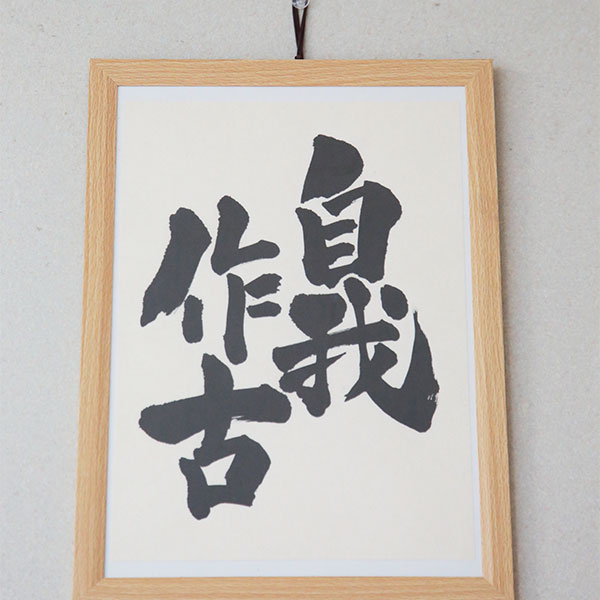 自我
作古